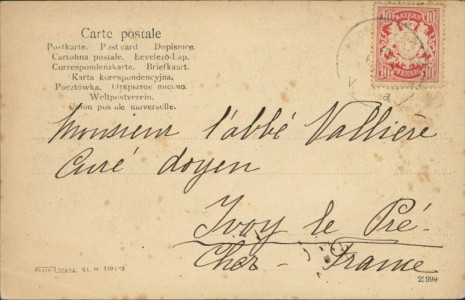 Carte postale
Postkarte. Postcard Dopisnice.
Cartolina postale. Levelező-Lap.
Correspondenzkarte. Briefkaart.
Karta korespondencyjna.
Pocztówka. Открытое письмо.
Weltpostverein.
Union postale universelle.
10 BAYERN 10
10 PFENNIG 10
Monsieur l'abbé Vallière
Curé doyen
Ivoy le Pré-
Cher- France
2) 999